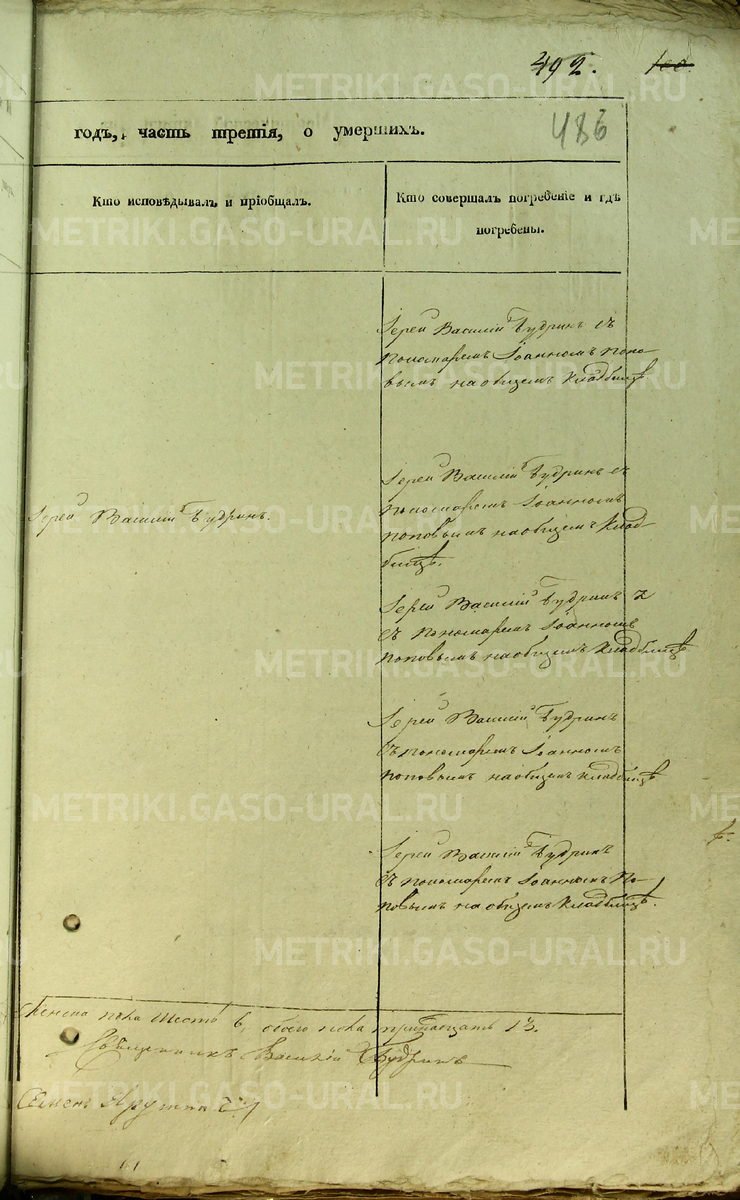 492.
486
годъ, часть третія, о умершихъ.
Кто исповѣдывалъ и пріобщалъ.
Кто совершалъ погребеніе и гдѣ
погребены.
Іерей Василій Будринъ съ
пономаремъ Іоанномъ Попо-
вымъ на общемъ кладбищѣ
Іерей Василій Будринъ.
Іерей Василій Будринъ съ
пономаремъ Іоанномъ
Поповымъ на общемъ клад-
бищѣ.
Іерей Василій Будринъ
съ пономаремъ Іоанномъ
Поповымъ на общемъ кладбищѣ
Іерей Василій Будринъ
съ пономаремъ Іоанномъ
Поповымъ на общемъ кладбищѣ
Іерей Василій Будринъ
съ пономаремъ Іоанномъ По-
повымъ на общемъ кладбищѣ.
Женска пола шесть 6, обоего пола тринадцать 13.
Священникъ Василій Будринъ
METRIKI.GASO-URAL.RU